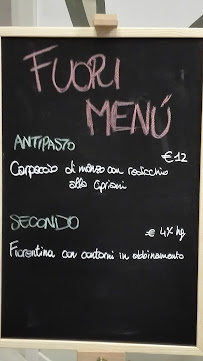 FUORI
MENÚ
ANTIPASTO
€12
Carpaccio di manzo con radicchio
alla Cipriani
SECONDO
€ 4 x hg
Fiorentina con contorni in abbinamento